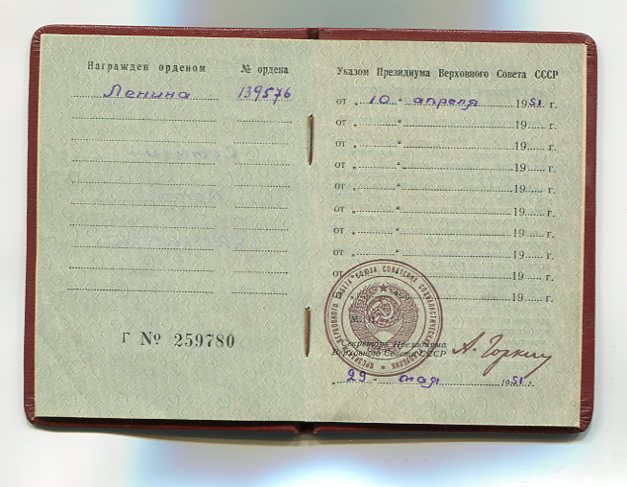 Награжден орденом № ордена
Ленина 139576
Г № 259780
Указом Президиума Верховного Совета СССР
от „10“ апреля 1951 г.
от „ “ 19 г.
от „ “ 19 г.
от „ “ 19 г.
от „ “ 19 г.
от „ “ 19 г.
от „ “ 19 г.
от „ “ 19 г.
от „ “ 19 г.
от „ “ 19 г.
М. П.
Секретарь Президиума
Верховного Совета СССР
А. Горкин
„29“ мая 1951 г.